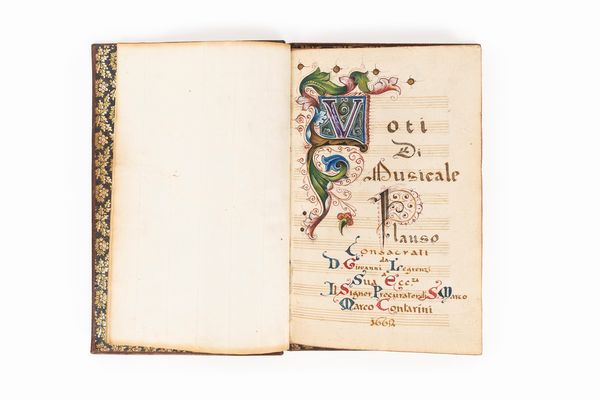 Voti
Di
Musicale
Plauso
Consacrati
da
D. Giovanni Legrenzi
a
Sua Ecc.za
Il Signor Procurator di S. Marco
Marco Contarini